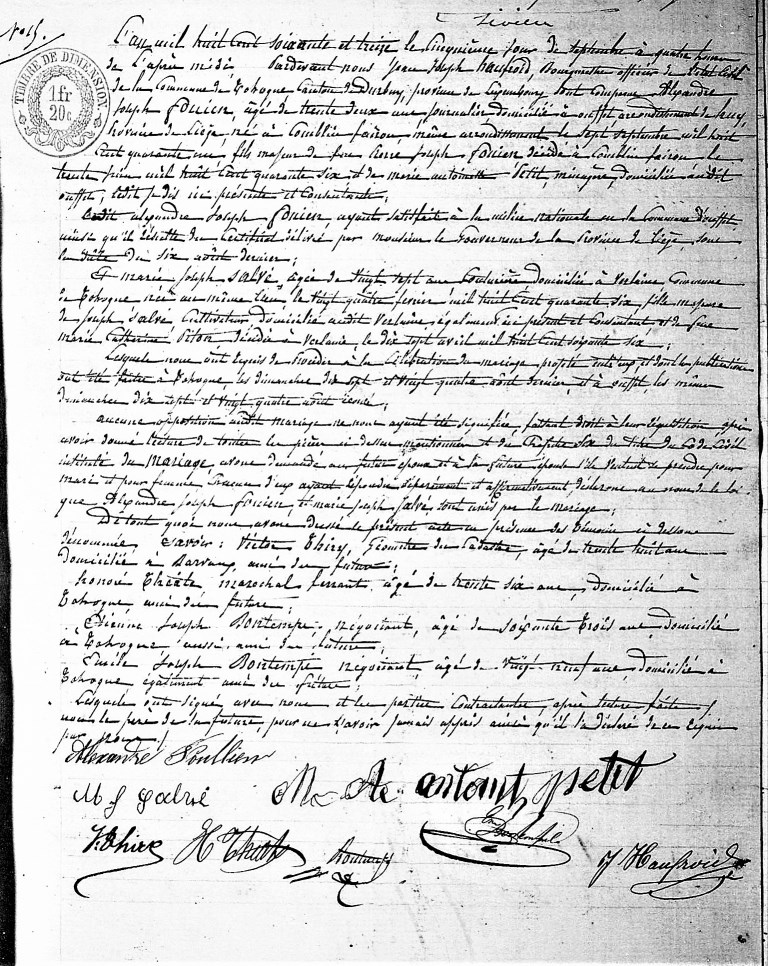 N° 15.
TIMBRE DE DIMENSION
1 fr
20 c
L'an mil huit cent soixante et treize le cinquième jour de septembre à quatre heures
de l'après midi, pardevant nous Jean Joseph Haufroid, Bourgmestre officier de l'état civil
de la Commune de Tohogne Canton de Durbuy, province de Luxembourg, sont comparus Alexandre
Joseph, âgé de trente deux ans journalier domicilié à ouffet arrondissement de huy,
province de Liège, né à Comblin fairon, même arrondissement le sept septembre mil huit
cent quarante un fils majeur de feu Pierre Joseph décédé à Comblin fairon, le
trente juin mil huit cent quarante six et de marie antoinette Petit, ménagère, domiciliée audit
ouffet, ici présente et consentante;
Ledit alexandre Joseph ayant satisfait à la milice nationale en la Commune d'ouffet
ainsi qu'il résulte du Certificat délivré par monsieur le Gouverneur de la Province de Liège, sous
la date du six août dernier;
Et marie Joseph Salvé, âgée de vingt sept ans Couturière domiciliée à Verlaine, Commune
de Tohogne née au même lieu, le vingt quatre fevrier mil huit cent quarante six, fille majeure
de Joseph Salvé, Cultivateur domicilié audit Verlaine, également ici présent et consentant et de feue
marie Catherine décédée à Verlaine, le dix sept avril mil huit cent soixante six;
Lesquels nous ont requis de procéder à la Célébration du mariage projeté entr'eux, et dont les publications
ont été faites à Tohogne, les dimanches dix sept et vingt quatre août dernier, et à ouffet les mêmes
dimanches dix sept et vingt quatre août écoulé;
aucune opposition audit mariage ne nous ayant été signifiée, faisant droit à leur réquisition, après
avoir donné lecture de toutes les pièces ci dessus mentionnées et du Chapitre six du titre du Code Civil
intitulé du Mariage, avons demandé au futur époux et à la future épouse s'ils veulent se prendre pour
mari et pour femme, chacun d'eux ayant répondu séparément et affirmativement, déclarons au nom de la loi
que Alexandre Joseph et marie Joseph Salvé, sont unis par le mariage;
De tout quoi nous avons dressé le présent acte en présence des témoins ci dessous
dénommés Savoir: Victor Thiry, Géomètre du Cadastre, âgé de trente huit ans
domicilié à Barvaux, ami du futur;
honoré marechal ferrant, âgé de trente six ans, domicilié à
Tohogne, ami du future;
Etienne Joseph Bontemps, négociant, âgé de soixante trois ans, domicilié
à Tohogne, aussi ami du future;
Emile Joseph Bontemps négociant, âgé de vingt neuf ans, domicilié à
Tohogne également ami du future;
Lesquels ont signé avec nous et les parties contractantes, après lecture faite,
le père de la future, pour ne l'avoir jamais appris ainsi qu'il l'a déclaré de ce requis
par nous
Alexandre
M J Salvé
antoint petit
V. Thiry
J Haufroid